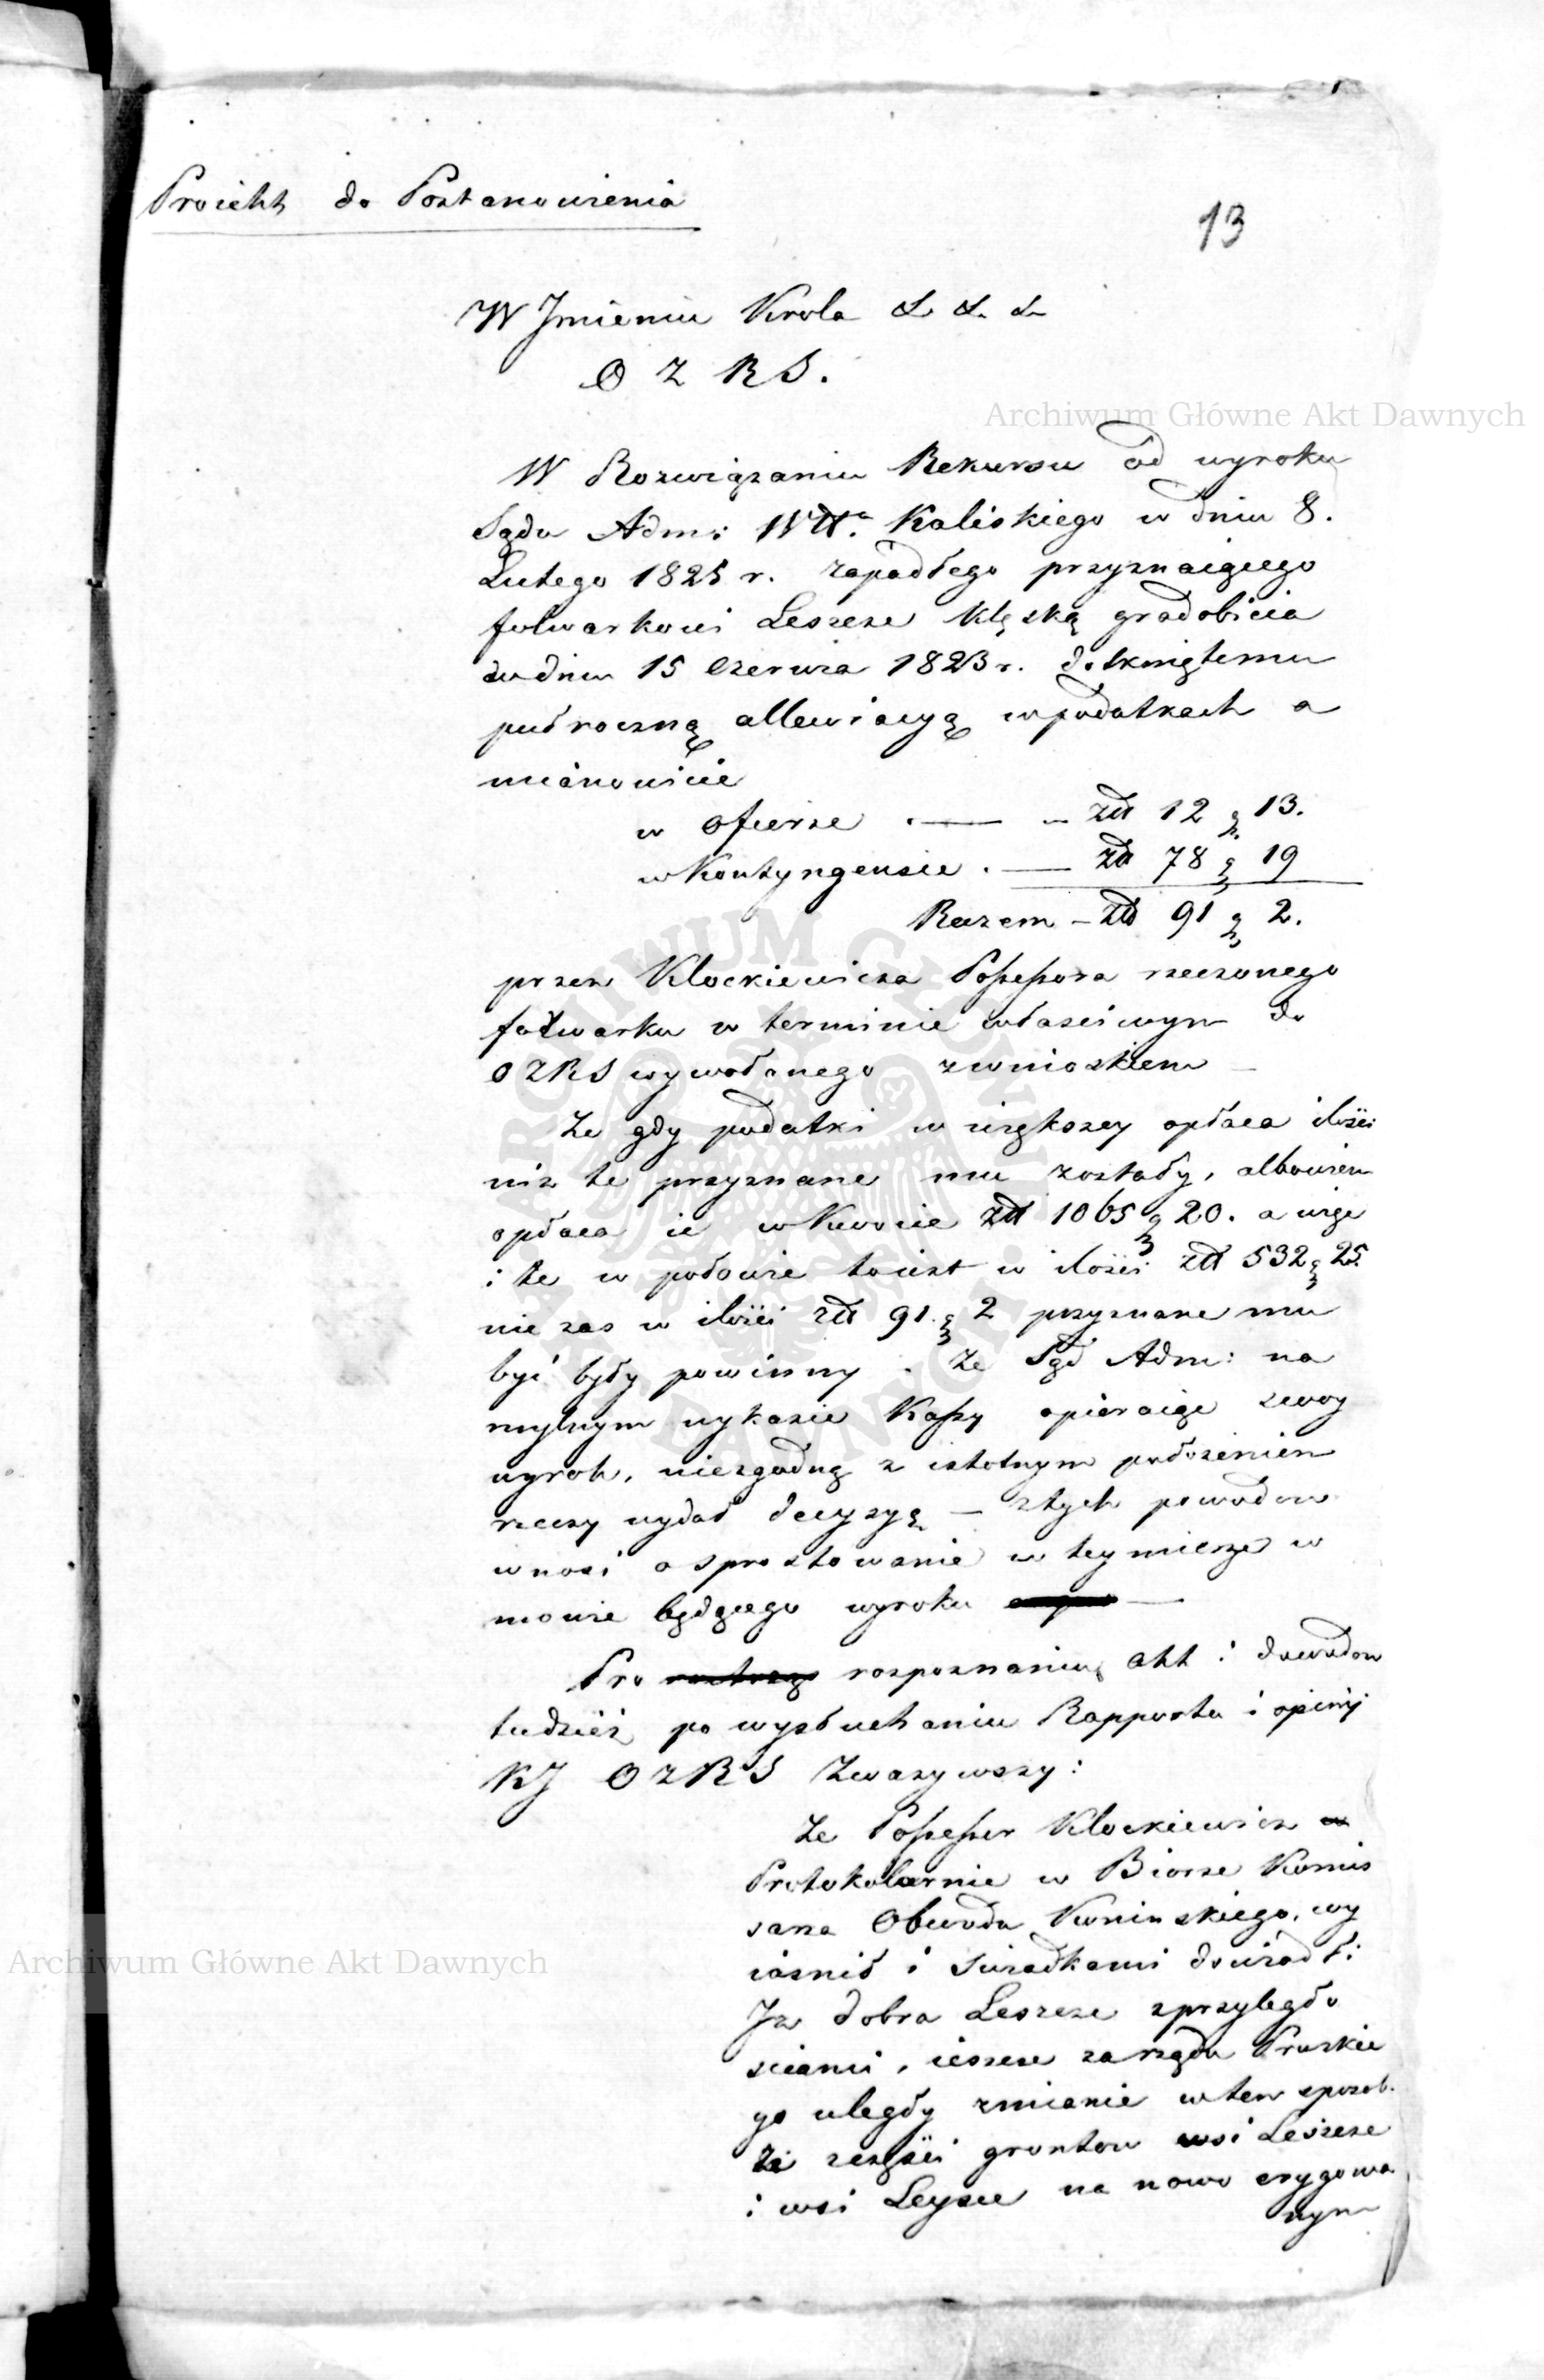 Proiekt do Postanowienia
13
W Jmieniu Krola & & &
O Z R S.
W Rozwiązaniu Rekursu od wyroku
Sądu Adm: Wtt. Kaliskiego w dniu 8.
Lutego 1825 r. zapadłego przyznaiącego
folwarkowi Leszcze klęską gradobicia
w dniu 15 Czerwca 1823 r. dotkniętemu
pułroczną allewiacyą w podatkach a
mianowicie
w Ofierze . — – Złł 12 g 13.
w Kontyngensie . — Zł 78 g 19
Razem – Złł 91 g 2.
przez Klockiewicza Possessora rzeczonego
folwarku w terminie właściwym do
OZRS wywołanego z wnioskiem –
Że gdy podatki w większey opłaca ilości
niż te przyznane mu zostały, albowiem
opłaca ie w kwocie Złł 1065 g 20. a więc
i te w połowie toiest w ilości Złł 532 g 25.
nie zas w ilości Złł 91. g 2 przyznane mu
być były powinny . Że Sąd Adm: na
mylnym wykazie Kassy opieraiąc swoy
wyrok, niezgodną z istotnym położeniem
rzeczy wydał decyzyą – z tych powodow
wnosi o sprostowanie w tey mierze w
mowie będącego wyroku —
Pro rozpoznaniu akt i dowodow
tudzież po wysłuchaniu Rapportu i opinij
KJ OZRS Zważywszy:
Że Possessor Klockiewicz
Protokolarnie w Biorze Komis
sarza Obwodu Koninskiego, wy
iasnił i Swiadkami dowiodł:
Jż dobra Leszcze z przyległo
sciami, ieszcze za rządu Pruskie
go uległy zmianie w ten sposob.
że z części grontow wsi Leszcze
i wsi Leysce na nowo erygowa
nym
Archiwum Główne Akt Dawnych
Archiwum Główne Akt Dawnych
ARCHIWUM GŁÓWNE AKT DAWNYCH